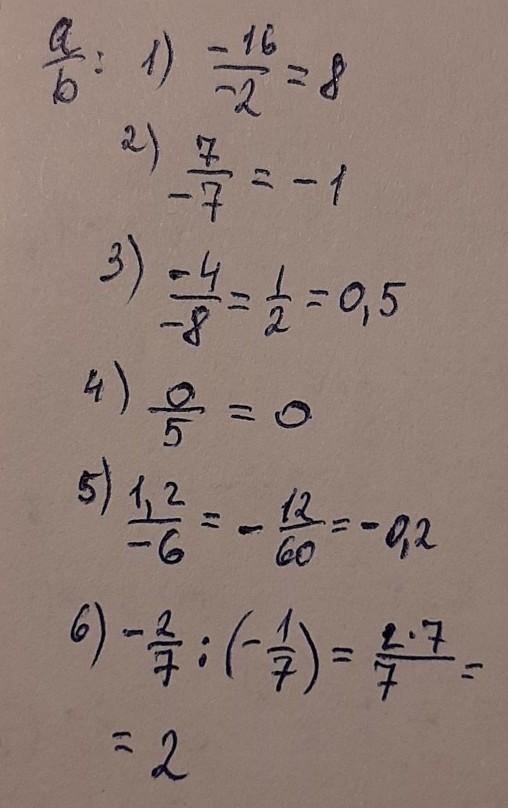 a/b: 1) -16/-2 = 8
2) 7/-7 = -1
3) -4/-8 = 1/2 = 0,5
4) 0/5 = 0
5) 1,2/-6 = -12/60 = -0,2
6) -2/7 : (-1/7) = 2·7/7 =
= 2